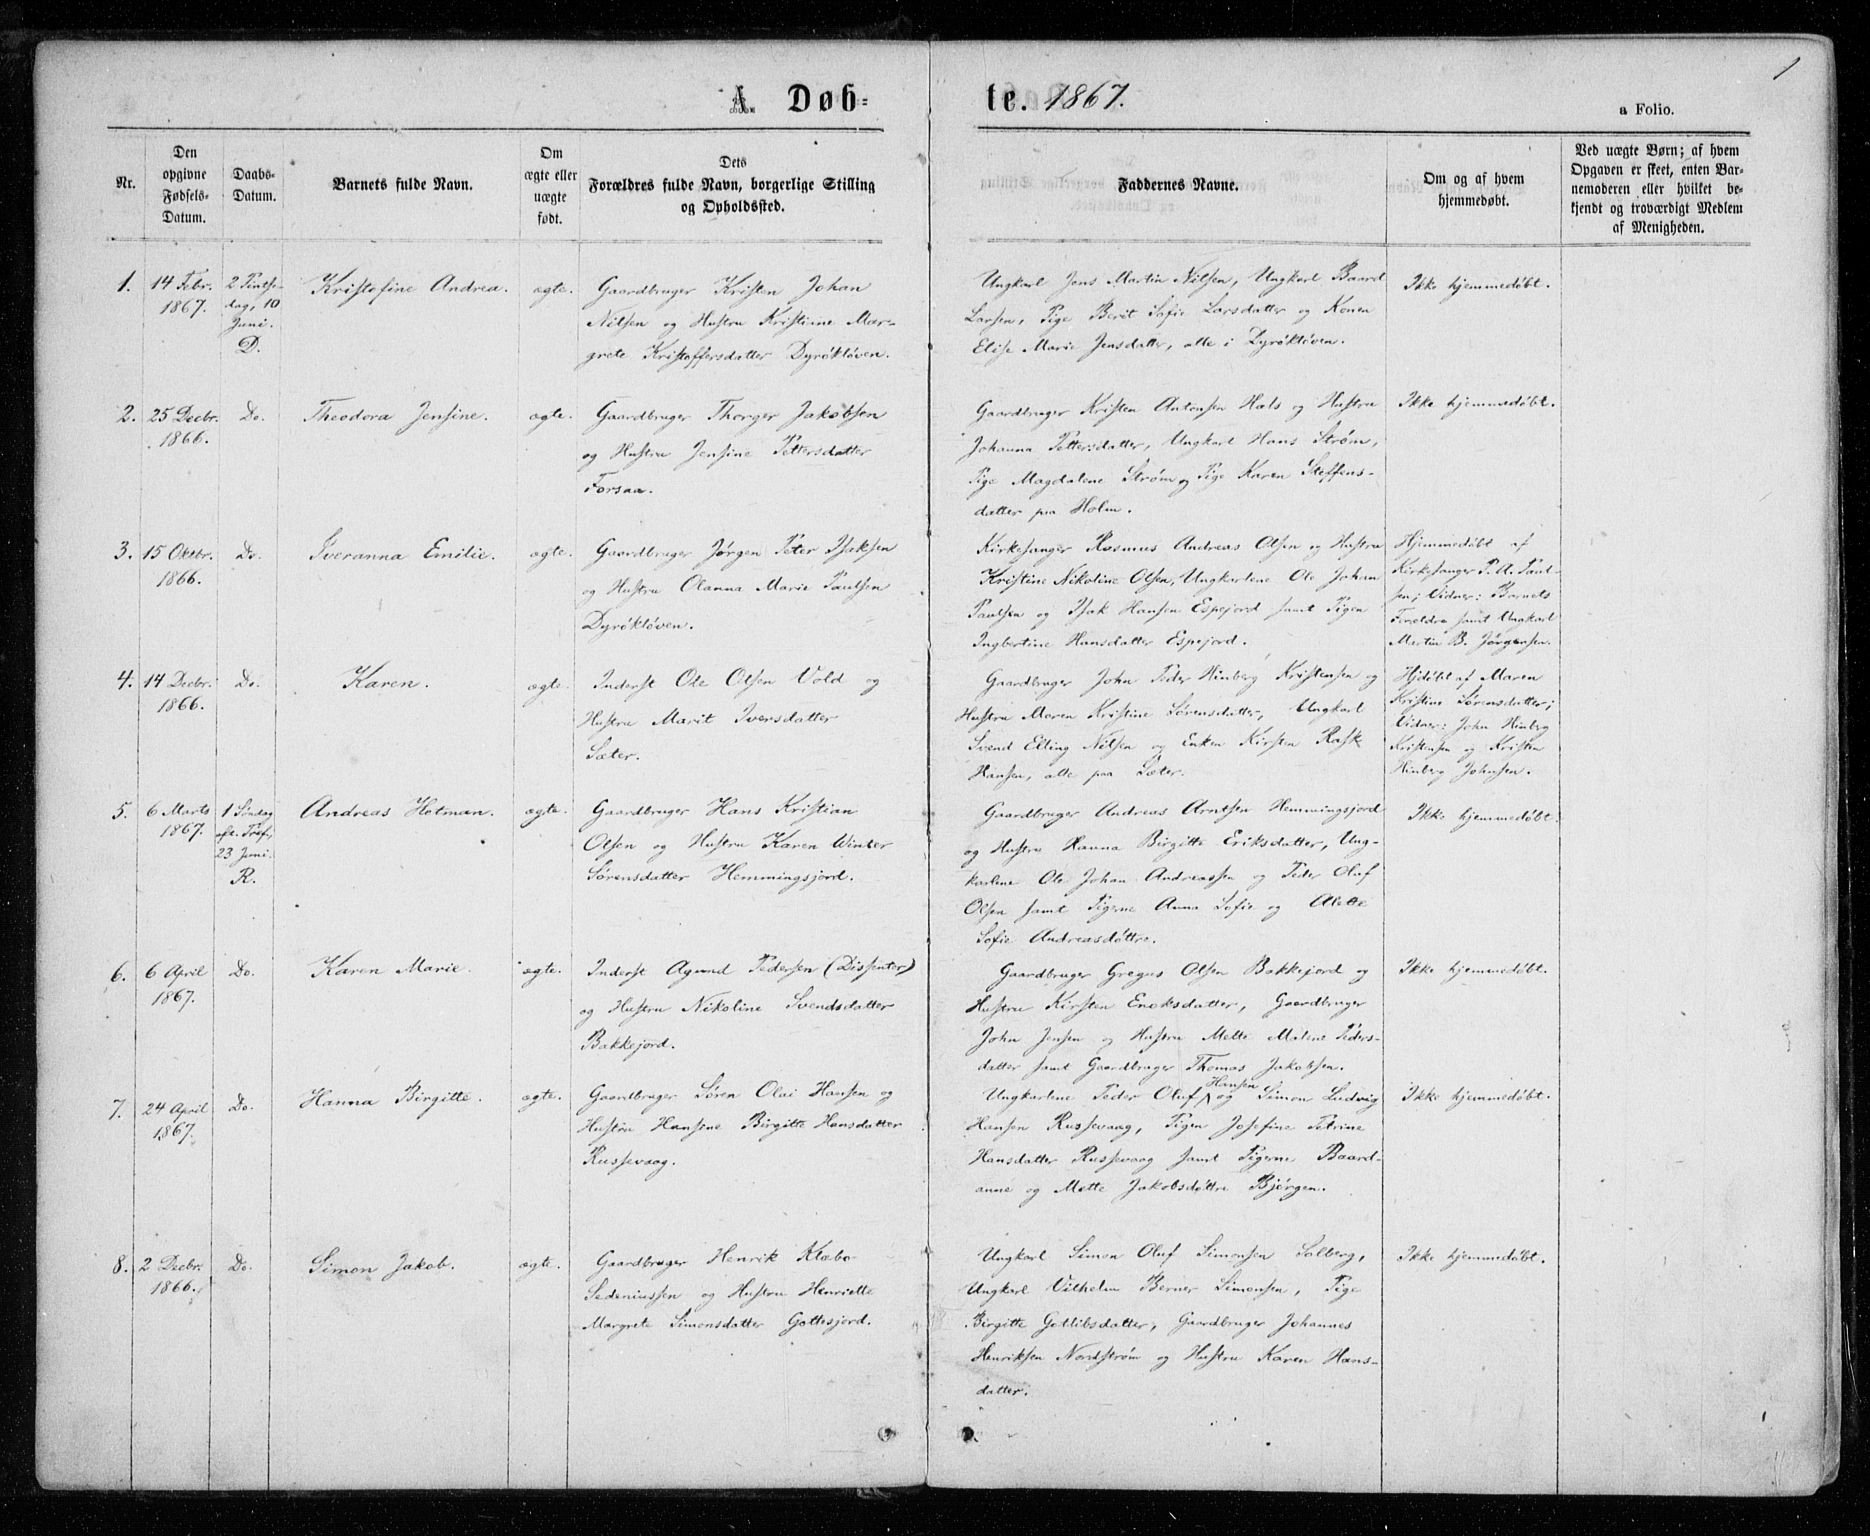 A Døb-
te. 1867.
1
a Folio.
Nr.
Den
opgivne
Fødsels-
Datum.
Daabs-
Datum.
Barnets fulde Navn.
Om
ægte eller
uægte
født.
Dets
Forældres fulde Navn, borgerlige Stilling
og Opholdssted.
Faddernes Navne.
Om og af hvem
hjemmedøbt.
Ved uægte Børn; af hvem
Opgaven er skeet, enten Bar-
nemoderen eller hvilket be-
kjendt og troværdigt Medlem
af Menigheden.
1.
14 Febr.
1867.
2 Pintse-
dag, 10
Juni.
D.
Kristofine Andrea.
ægte.
Gaardbruger Kristen Johan
Nilsen og Hustru Kristine Mar-
grete Kristoffersdatter Dyrökløven.
Ungkarl Jens Martin Nilsen, Ungkarl Baard
Larsen, Pige Berit Sofie Larsdatter og Konen
Elise Marie Jensdatter, alle i Dyrökløven.
Ikke hjemmedøbt.
2.
25 Decbr.
1866.
Do.
Theodora Jensine.
ægte.
Gaardbruger Thorger Jakobsen
og Hustru Jensine Pettersdatter
Forsaa.
Gaardbruger Kristen Antonsen Hals og Hustru
Johanna Pettersdatter, Ungkarl Hans Strøm,
Pige Magdalene Strøm og Pige Karen Steffens-
datter paa Holm.
Ikke hjemmedøbt.
3.
15 Oktbr.
1866.
Do.
Iveranna Emilie.
ægte.
Gaardbruger Jørgen Peter Isaksen
og Hustru Olanna Marie Paulsen
Dyrökløven.
Kirkesanger Rasmus Andreas Olsen og Hustru
Kristine Nikoline Olsen, Ungkarlene Ole Johan
Paulsen og Isak Hansen Espejord samt Pigen
Ingbertine Hansdatter Espejord.
Hjemmedøbt af
Kirkesanger P. A. Paul-
sen; Vidner: Barnets
Foreldre samt Ungkarl
Martin B. Jørgensen.
4.
14 Decbr.
1866.
Do.
Karen.
ægte.
Inderst Ole Olsen Vold og
Hustru Marit Iversdatter
Sæter.
Gaardbruger John Peder Hinberg Kristensen og
Hustru Maren Kristine Sørensdatter, Ungkarl
Svend Elling Nilsen og Enken Kirsten Rask
Hansen, alle paa Sæter.
Hjdøbt af Maren
Kristine Sørensdatter;
Vidner: John Hinberg
Kristensen og Kristen
Hinberg Johnsen.
5.
6 Marts
1867.
1 Søndag
eft. Tref,
23 Juni.
R.
Andreas Hotman.
ægte.
Gaardbruger Hans Kristian
Olsen og Hustru Karen Winter
Sørensdatter Hemmingsjord.
Gaardbruger Andreas Arntsen Hemmingsjord
og Hustru Hanna Birgitte Eriksdatter, Ung-
karlene Ole Johan Andreassen og Peder Oluf
Olsen samt Pigerne Anna Sofie og Alette
Sofie Andreasdøttre.
Ikke hjemmedøbt.
6.
6 April
1867.
Do.
Karen Marie.
ægte.
Inderst Agund Pedersen (Dissenter)
og Hustru Nikoline Svendsdatter
Bakkejord.
Gaardbruger Greges Olsen Bakkejord og
Hustru Kirsten Enoksdatter, Gaardbruger
John Jensen og Hustru Mette Malene Peders-
datter samt Gaardbruger Thomas Jakobsen.
Ikke hjemmedøbt.
7.
24 April
1867.
Do.
Hanna Birgitte.
ægte.
Gaardbruger Søren Olai Hansen og
Hustru Hansine Birgitte Hansdatter
Russevaag.
Ungkarlene Peder Oluf Hansen og Simon Ludvig
Hansen Russevaag, Pigen Josefine Petrine
Hansdatter Russevaag samt Pigerne Baard-
anne og Mette Jakobsdøttre Bjørgen.
Ikke hjemmedøbt.
8.
2 Decbr.
1866.
Do.
Simon Jakob.
ægte.
Gaardbruger Henrik Klæbo
Sedeniussen og Hustru Henriette
Margrete Simonsdatter Gottesjord.
Ungkarl Simon Oluf Simonsen Solberg,
Ungkarl Vilhelm Berner Simonsen, Pige
Birgitte Gotlibsdatter, Gaardbruger Johannes
Henriksen Nordstrøm og Hustru Karen Hans-
datter.
Ikke hjemmedøbt.